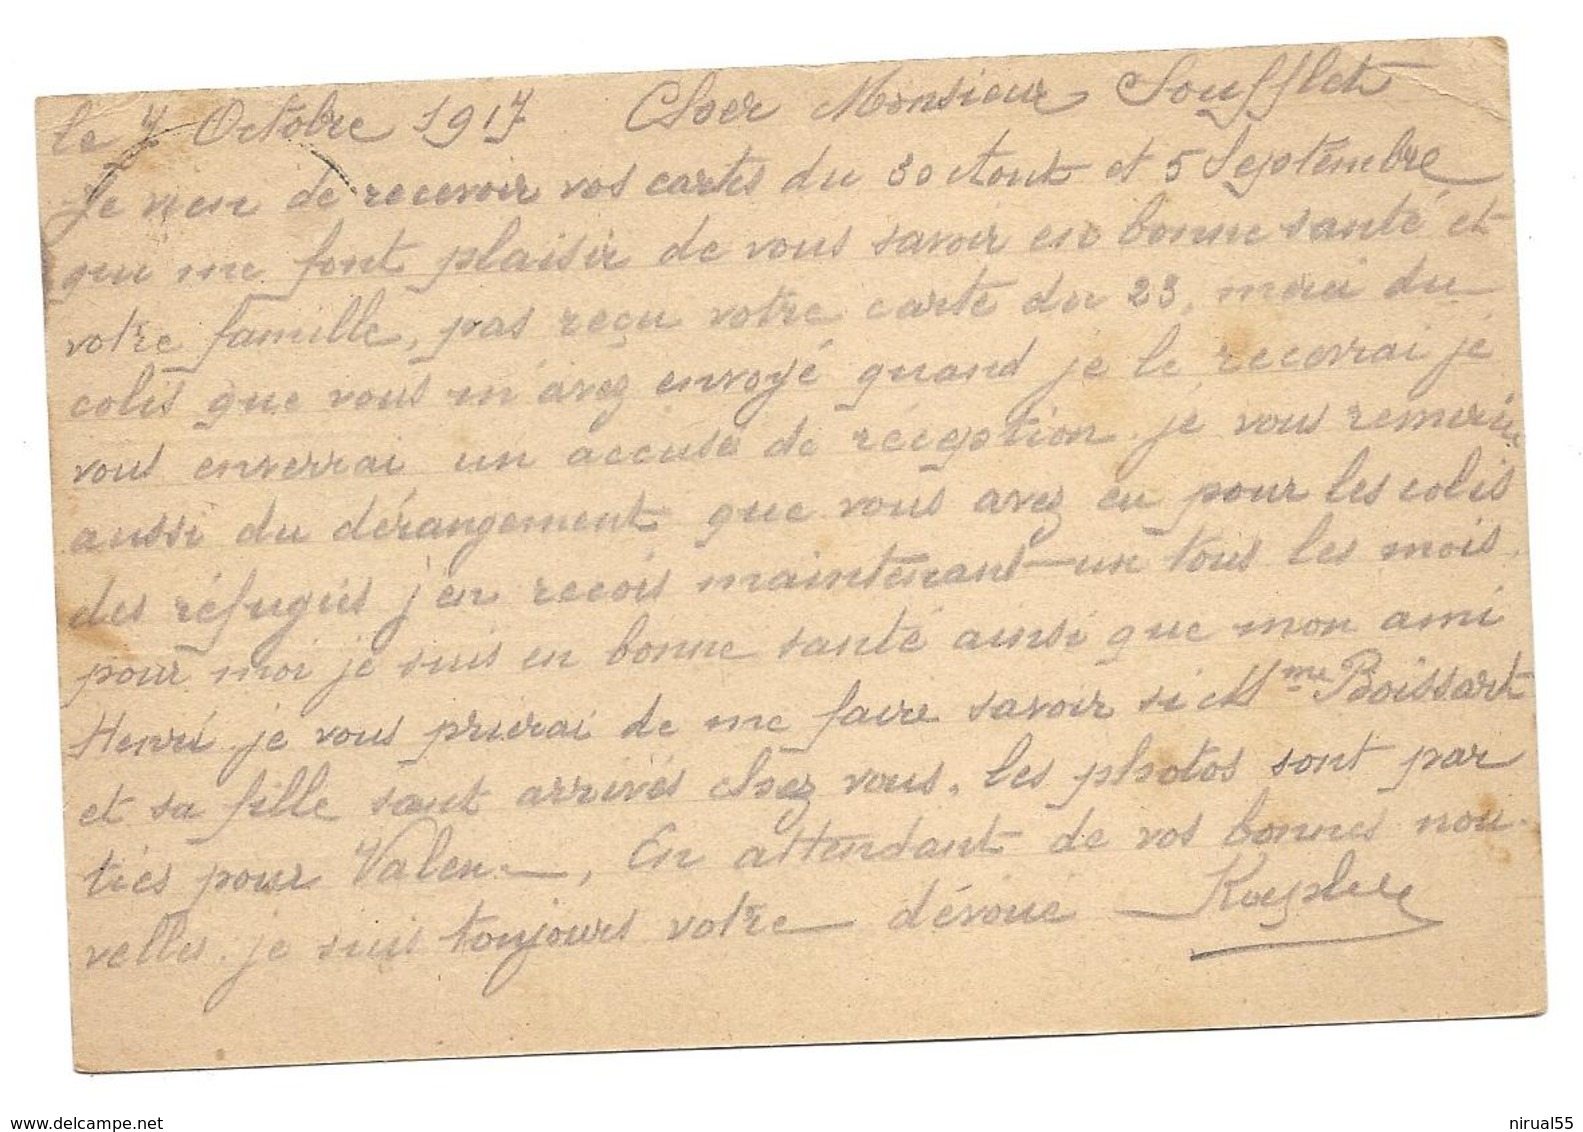 le 7 Octobre 1917 Cher Monsieur Soufflet
Je vien de recevoir vos cartes du 30 Aout et 5 Septembre
qui me font plaisir de vous savoir en bonne santé et
votre famille, pas reçu votre carte du 23, merci du
colis que vous m'avez envoyé quand je le recevrai je
vous enverrai un accusé de réception. je vous remercie
aussi du dérangement que vous avez eu pour les colis
des réfugiés j'en recois maintenant un tous les mois.
pour moi je suis en bonne santé ainsi que mon ami
Henri. je vous prierai de me faire savoir si Mme Boissart
et sa fille sont arrivés chez vous. les photos sont par
ties pour Valen, En attendant de vos bonnes nou-
velles. je suis toujours votre dévoué
delcampe.net
nirual55